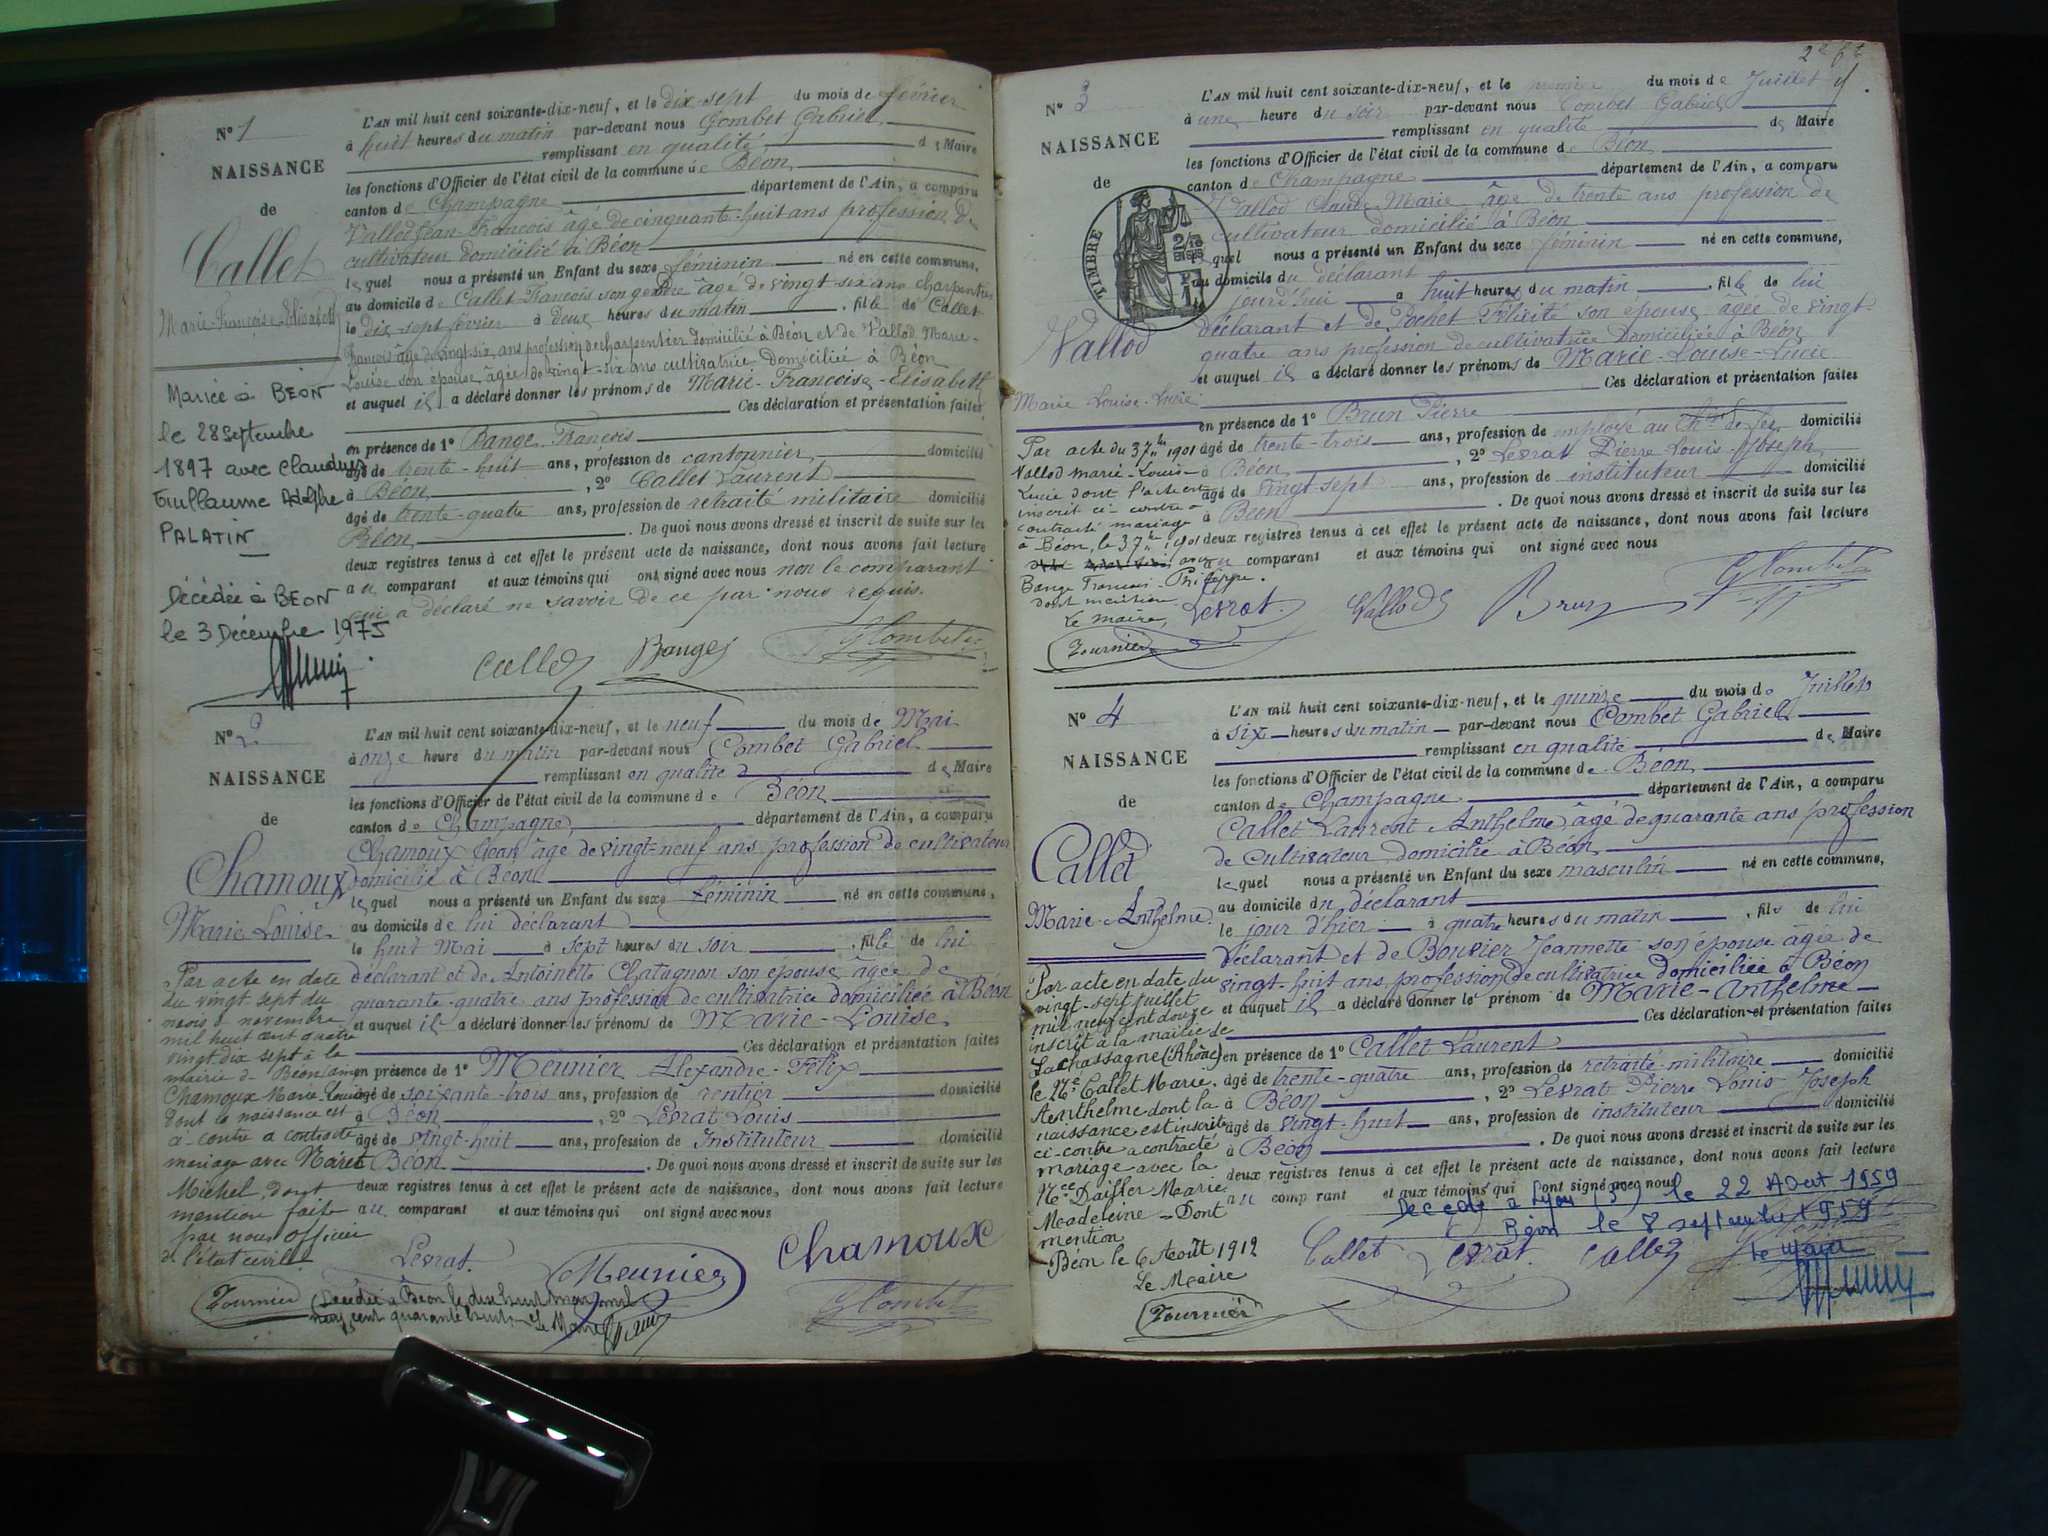 N° 1
NAISSANCE
de
Callet
Marie-Françoise-Elisabeth
Mariée à BEON
le 28 Septembre
1897 avec Claudius
Guillaume Adolphe
PALATIN
Décédée à BEON
le 3 Décembre 1975
L'AN mil huit cent soixante-dix-neuf, et le dix-sept du mois de février
à huit heures du matin par-devant nous Combet Gabriel
remplissant en qualité de Maire
les fonctions d'Officier de l'état civil de la commune de Béon
canton de Champagne département de l'Ain, a comparu
Vallod Jean-François âgé de cinquante-huit ans profession de
cultivateur domicilié à Béon
lequel nous a présenté un Enfant du sexe féminin né en cette commune,
au domicile de Callet François son gendre âgé de vingt-six ans charpentier
le dix-sept février à deux heures du matin, fille de Callet
François âgé de vingt-six ans profession de charpentier domicilié à Béon et de Vallod Marie-
Louise son épouse âgée de vingt-six ans cultivatrice Domiciliée à Béon
et auquel il a déclaré donner les prénoms de Marie-Françoise-Elisabeth
Ces déclaration et présentation faites
en présence de 1° Bange François
âgé de trente-huit ans, profession de cantonnier, domicilié
à Béon, 2° Callet Laurent
âgé de trente-quatre ans, profession de retraité militaire domicilié
Béon. De quoi nous avons dressé et inscrit de suite sur les
deux registres tenus à cet effet le présent acte de naissance, dont nous avons fait lecture
au comparant et aux témoins qui ont signé avec nous non le comparant
qui a déclaré ne savoir de ce par nous requis.
Callet Bange G Combet
N° 2
NAISSANCE
de
Chamoux
Marie Louise
Par acte en date
du vingt sept du
mois de novembre
mil huit cent quatre
vingt dix sept à la
mairie de Béon (Ain)
Chamoux Marie Louise
dont la naissance est
ci-contre a contracté
mariage avec
Michel, dont
mention faite
par nous officier
de l'état civil.
Tournier
L'AN mil huit cent soixante-dix-neuf, et le neuf du mois de Mai
à onze heure du matin par-devant nous Combet Gabriel
remplissant en qualité de Maire
les fonctions d'Officier de l'état civil de la commune de Béon
canton de Champagne département de l'Ain, a comparu
Chamoux Jean âgé de vingt-neuf ans profession de cultivateur
domicilié à Béon
lequel nous a présenté un Enfant du sexe féminin né en cette commune,
au domicile de lui déclarant
le huit Mai à sept heures du soir, fille de lui
déclarant et de Antoinette Chatagnon son épouse âgée de
quarante-quatre ans profession de cultivatrice domiciliée à Béon
et auquel il a déclaré donner les prénoms de Marie-Louise
Ces déclaration et présentation faites
en présence de 1° Meunier Alexandre-Félix
âgé de soixante-trois ans, profession de rentier domicilié
à Béon, 2° Levrat Louis
âgé de vingt-huit ans, profession de Instituteur domicilié
Béon. De quoi nous avons dressé et inscrit de suite sur les
deux registres tenus à cet effet le présent acte de naissance, dont nous avons fait lecture
au comparant et aux témoins qui ont signé avec nous
Levrat. Meunier Chamoux
G Combet
Décédée à Béon le dix huit mars mil
neuf cent quarante huit. Le Maire
N° 3
NAISSANCE
de
TIMBRE
Vallod
Marie Louise-Lucie
Par acte du 1901
Vallod Marie-Louis-
Lucie dont l'acte est
inscrit ci-contre a
contracté mariage
à Béon, le 1901
avec
Bange François-Philippe.
dont mention
Le maire,
Tournier
L'AN mil huit cent soixante-dix-neuf, et le premier du mois de Juillet
à une heure du soir par-devant nous Combet Gabriel
remplissant en qualité de Maire
les fonctions d'Officier de l'état civil de la commune de Béon
canton de Champagne département de l'Ain, a comparu
Vallod Claude-Marie âgé de trente ans profession de
cultivateur domicilié à Béon
lequel nous a présenté un Enfant du sexe féminin né en cette commune,
au domicile du déclarant
jourd'hui à huit heures du matin, fille de lui
déclarant et de Pochet Félicité son épouse âgée de vingt-
quatre ans profession de cultivatrice Domiciliée à Béon
et auquel il a déclaré donner les prénoms de Marie-Louise-Lucie
Ces déclaration et présentation faites
en présence de 1° Brun Pierre
âgé de trente-trois ans, profession de employé au de fer domicilié
à Béon, 2° Levrat Pierre Louis-Joseph
âgé de vingt-sept ans, profession de instituteur domicilié
à Béon. De quoi nous avons dressé et inscrit de suite sur les
deux registres tenus à cet effet le présent acte de naissance, dont nous avons fait lecture
au comparant et aux témoins qui ont signé avec nous
Levrat. Vallod Brun G Combet
N° 4
NAISSANCE
de
Callet
Marie-Anthelme
Par acte en date du
vingt-sept juillet
mil neuf cent douze
inscrit à la mairie de
Lachassagne (Rhône)
le Né Callet Marie,
Anthelme dont la
naissance est inscrite
ci-contre a contracté
mariage avec la
Née Daisler Marie
Madeleine - Dont
mention
Béon le 6 Août 1912
Le Maire
Tournier
L'AN mil huit cent soixante-dix-neuf, et le quinze du mois de Juillet
à six heures du matin par-devant nous Combet Gabriel
remplissant en qualité de Maire
les fonctions d'Officier de l'état civil de la commune de Béon
canton de Champagne département de l'Ain, a comparu
Callet Laurent Anthelme, âgé de quarante ans profession
de cultivateur domicilié à Béon
lequel nous a présenté un Enfant du sexe masculin né en cette commune,
au domicile du déclarant
le jour d'hier à quatre heures du matin, fils de lui
déclarant et de Bouvier Jeannette son épouse âgée de
vingt-huit ans profession de cultivatrice domiciliée à Béon
et auquel il a déclaré donner le prénom de Marie-Anthelme
Ces déclaration et présentation faites
en présence de 1° Callet Laurent
âgé de trente-quatre ans, profession de retraité-militaire domicilié
à Béon, 2° Levrat Pierre Louis Joseph
âgé de vingt-huit ans, profession de instituteur domicilié
à Béon. De quoi nous avons dressé et inscrit de suite sur les
deux registres tenus à cet effet le présent acte de naissance, dont nous avons fait lecture
au comparant et aux témoins qui ont signé avec nous
Décédé à Lyon (3) le 22 Aout 1959
Béon le 8 septembre 1959
le maire
Callet Levrat. Callet